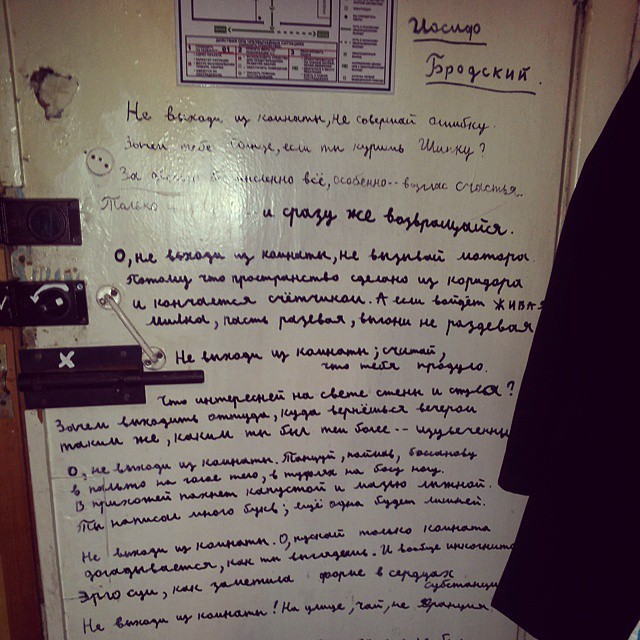 Иосиф
Бродский.
Не выходи из комнаты, не совершай ошибку.
Зачем тебе Солнце, если ты куришь Шипку?
За дверью бессмысленно всё, особенно -- возглас счастья.
Только и сразу же возвращайся.
О, не выходи из комнаты, не вызывай мотора.
Потому что пространство сделано из коридора
и кончается счётчиком. А если войдёт живая
милка, пасть разевая, выгони не раздевая
Не выходи из комнаты; считай,
что тебя продуло.
Что интересней на свете стены и стула?
Зачем выходить оттуда, куда вернёшься вечером
таким же, каким ты был, тем более -- изувеченным
О, не выходи из комнаты. Танцуй, поймав, боссанову
в пальто на голое тело, в туфлях на босу ногу.
В прихожей пахнет капустой и мазью лыжной.
Ты написал много букв; ещё одна будет лишней.
Не выходи из комнаты. О, пускай только комната
догадывается, как ты выглядишь. И вообще инкогнито
эрго сум, как заметила форме в сердцах
субстанция
Не выходи из комнаты! На улице, чай, не Франция